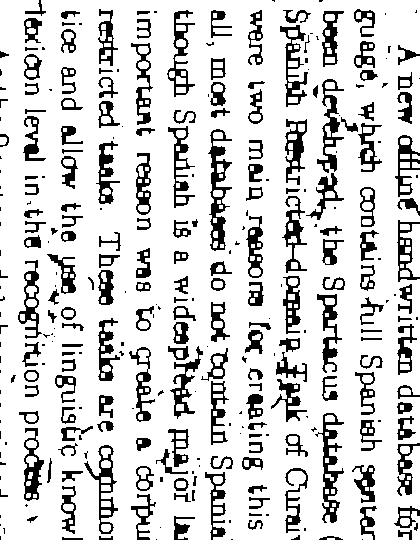 A new offline handwritten database for
guage, which contains full Spanish senten
been developed: the Spartacus database (
Spanish Restricted-domain Task of Cursiv
were two main reasons for creating this
all, most databases do not contain Spania
though Spanish is a widespread major la
important reason was to create a corpu
restricted tasks. These tasks are common
tice and allow the use of linguistic knowl
lexicon level in the recognition process.